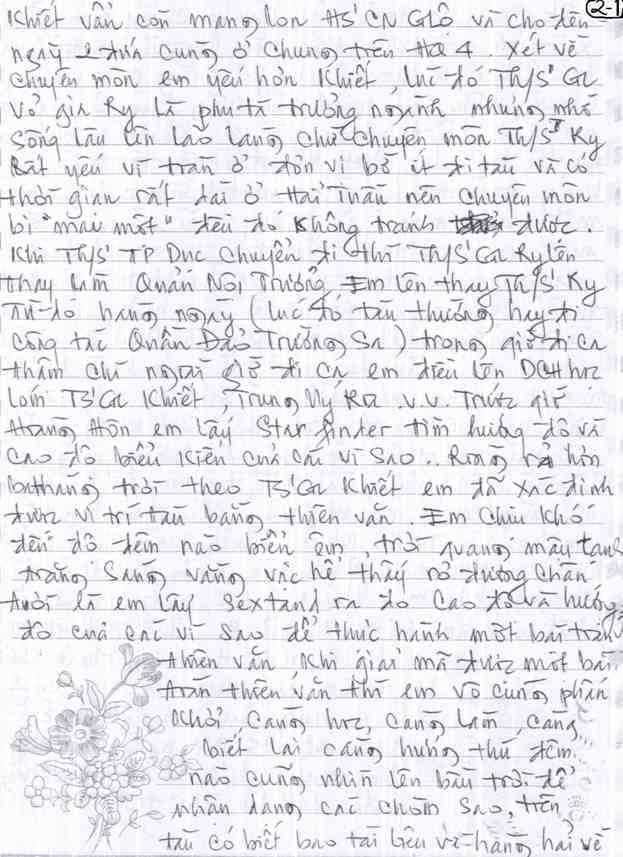 2-1
Khiết vẫn còn mang lon HS' CN GLộ và cho đến
ngày 2 đứa cùng ở chung trên HQ 4. Xét về
chuyên môn em yếu hơn Khiết, lúc đó Th/S' GL
Võ gia Ky là phụ tá trưởng ngành nhưng nhờ
sống lâu lên lão làng chứ chuyên môn Th/S' Ky
Rất yếu vì trần ở đơn vị bờ ít đi tàu và có
thời gian rất dài ở Hải Tuần nên chuyên môn
bị "mai một" điều đó không tránh được.
Khi Th/S' TP Dục chuyển đi thì Th/S' GL Ky lên
thay làm Quản Nội Trưởng. Em lên thay Th/S' Ky
Từ đó hàng ngày (lúc đó tàu thường hay đi
công tác Quần Đảo Trường Sa) trong giờ đi ca
thậm chí ngoài giờ đi ca em đều lên ĐCH học
lóm TS' GL Khiết, Trung Uý v.v. Trước giờ
Hoàng Hôn em lấy Star finder tìm hướng độ và
cao độ biểu kiến của các vì Sao.. Ròng rã hơn
3 tháng trời theo TS' GL Khiết em đã xác định
được vị trí tàu bằng thiên văn. Em chịu khó
đến độ đêm nào biển êm, trời quang mây tạnh
trăng sáng vằng vặc hễ thấy rõ đường chân
trời là em lấy Sextand ra đo cao độ và hướng
độ của các vì sao để thực hành một bài toán
thiên văn, khi giải mã được một bài
toán thiên văn thì em vô cùng phấn
khởi càng học, càng làm, càng
biết lại càng hứng thú đêm
nào cũng nhìn lên bầu trời để
nhận dạng các chòm sao, trên
tàu có biết bao tài liệu về hàng hải về